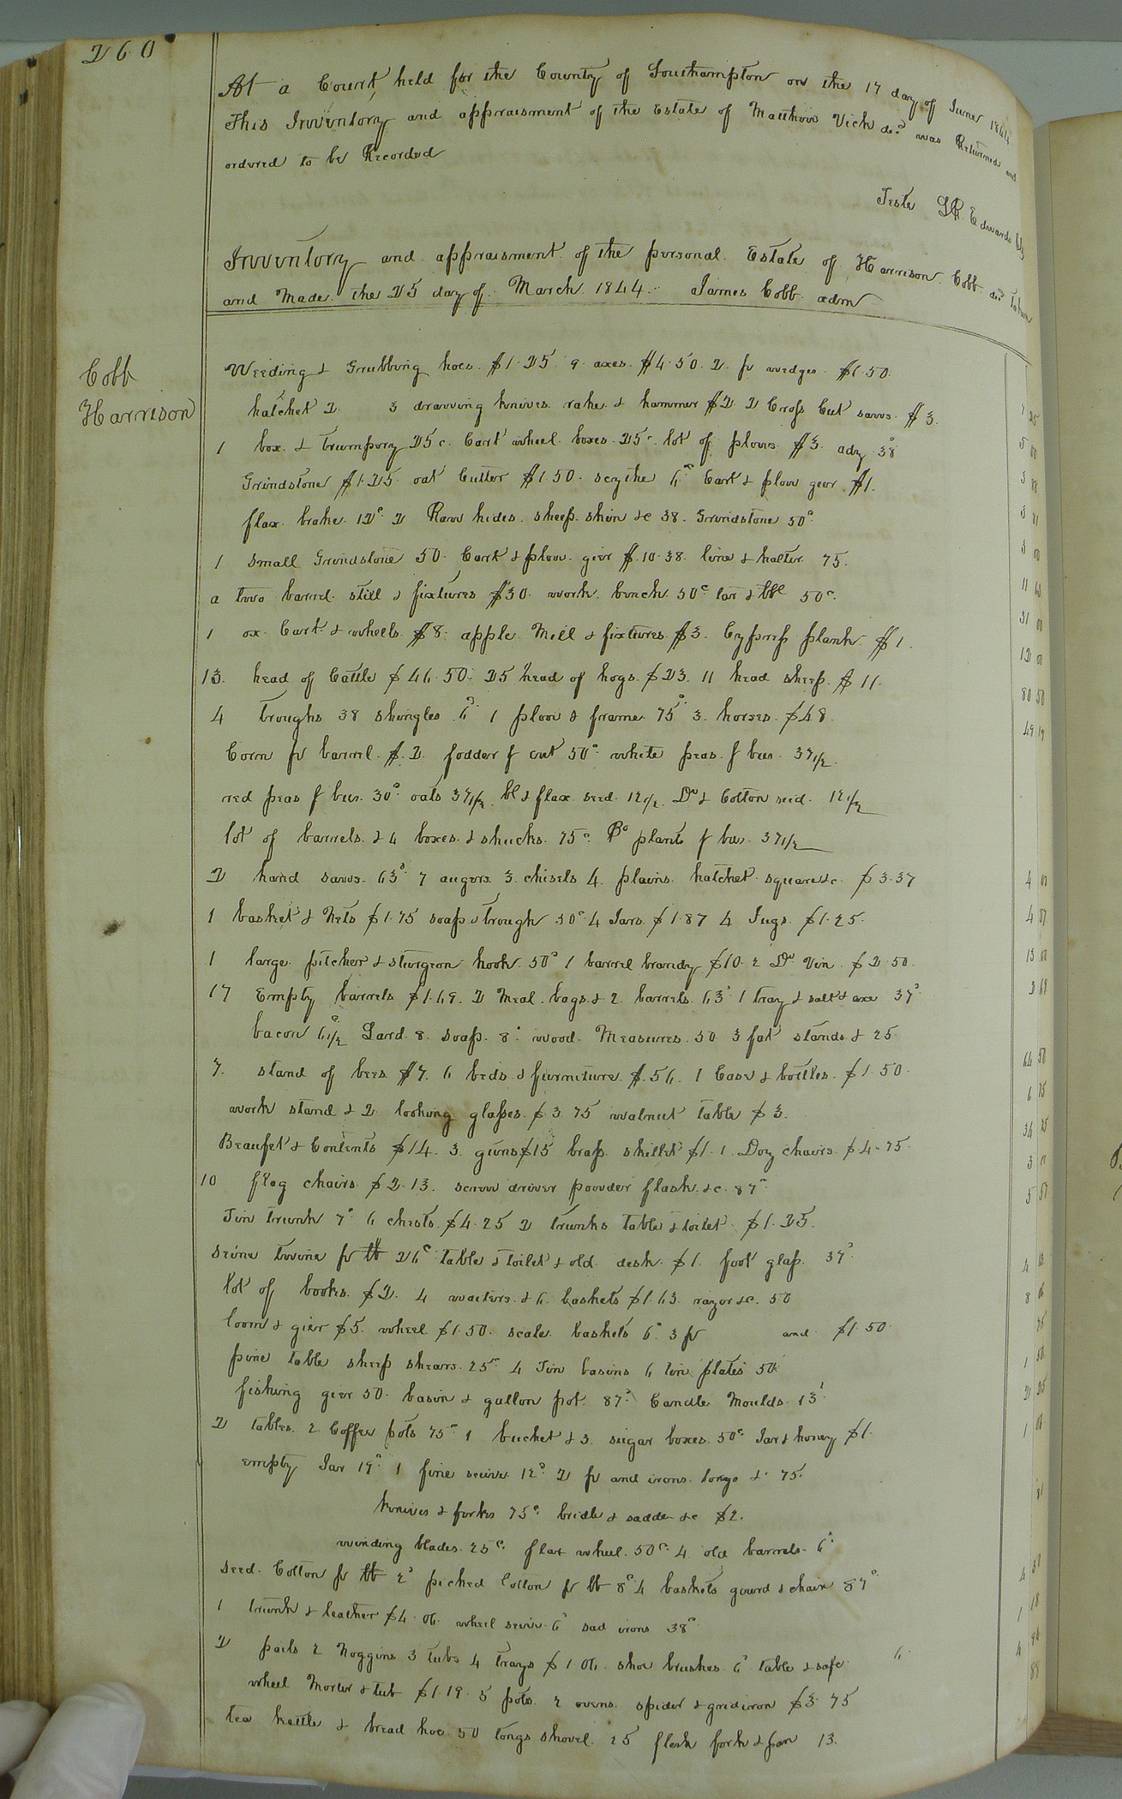 260
At a Court held for the County of Southampton on the 17 day of June 1844
This Inventory and appraisment of the Estate of Matthew Vick decd was Returned and
ordered to be Recorded
Teste LR Edwards Clk
Inventory and appraisment of the personal Estate of Harrison Cobb decd Taken
and Made the 25 day of March 1844. James Cobb adm
Cobb
Harrison
Weeding & Grubbing hoes $1.25 9 axes $4.50 2 pr wedges $1.50
hatchet 2 3 drawing knives rake & hammer $2 2 Cross Cut saws $3
1 box & trumpory 25c Cart wheel boxes 25c lot of plows $3 adz 38c
Grindstone $1.25 oat Cutter $1.50 scythe 6c Cart & plow gear $1.
flax brake 12c 2 Raw hides sheep skin &c 38 Grindstone 50c
1 small Grindstone 50 Cart & plow gier $10.38 line & halter 75.
a two barrel still & fixtures $30 work bench 50c tar & bbl 50c
1 ox Cart & wheels $8 apple Mill & fixtures $3 Cypress plank $1.
13 head of Cattle $46.50 25 head of hogs $23 11 head sheep $11.
4 troughs 38 shingles 6c 1 plow & frame 75c 3 horses $48
Corn pr barrel $2 fodder p cwt 50c white peas p bus 37 1/2
red peas p bus 30c oats 37 1/2 bl & flax seed 12 1/2 Do & Cotton seed 12 1/2
lot of barrels & 4 boxes & shucks 75c Po plants p bus 37 1/2
2 hand saws 63c 7 augers 3 chisels 4 plains hatchet square &c $3.37
1 basket & Nets $1.75 soap & trough 50c 4 Jars $1.87 4 Jugs $1.25
1 large pitcher & sturgeon hook 50c 1 barrel brandy $10 2 Do Vin $2.50
17 Empty barrels $1.69 2 Meal bags & 2 barrels 63c 1 tray & salt & axe 37c
bacon 6 1/2c Lard 8 soap 8c wood Measures 50 3 fat stands & 25
7 stand of bees $7. 6 beds & furniture $56 1 Case & bottles $1.50
work stand & 2 looking glasses $3.75 walnut table $3.
Beaufet & Contents $14 3 guns $15 brass skillet $1. 1 Doz chairs $4.75
10 flag chairs $2.13 screw driver powder flask &c 87c
Tin trunk 7c 6 chests $4.25 2 trunks table & toilet $1.25.
seine twine pr lb 26c table & toilet & old desk $1 foot glass 37c
lot of books $2. 4 waiters & 6 baskets $1.63 razor &c 50
loom & gier $5 wheel $1.50 scale baskets 6c 3 pr and $1.50
pine table sheep shears 25c 4 Tin basins 6 tin plates 50
fishing gier 50 basin & gallon pot 87c Candle Moulds 13c
2 tables 2 Coffee pots 75c 1 bucket & 3 sugar boxes 50c Jar & honey $1.
empty Jar 19c 1 fine seive 12c 2 pr and irons tongs & 75.
knives & forks 75c bridle & saddle &c $2.
winding blades 25c flax wheel 50c 4 old barrels 6c
seed Cotton pr lb 2c picked Cotton pr lb 8c 4 baskets gourd & chair 87c
1 trunk & leather $4.06 wheel seive 6c sad irons 38c
2 pails 2 Noggins 3 tubs 4 trays $1.06 shoe brushes 6c table & safe 6
wheel Morter & tub $1.19 5 pots 2 ovens spider & gridiron $3.75
tea kettle & bread hoe 50 tongs shovel 25 flesh fork & pan 13.